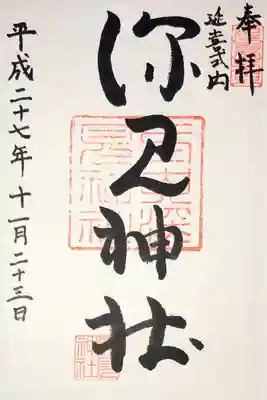 奉拝
延喜式内
深見神社
平成二十七年十一月二十三日